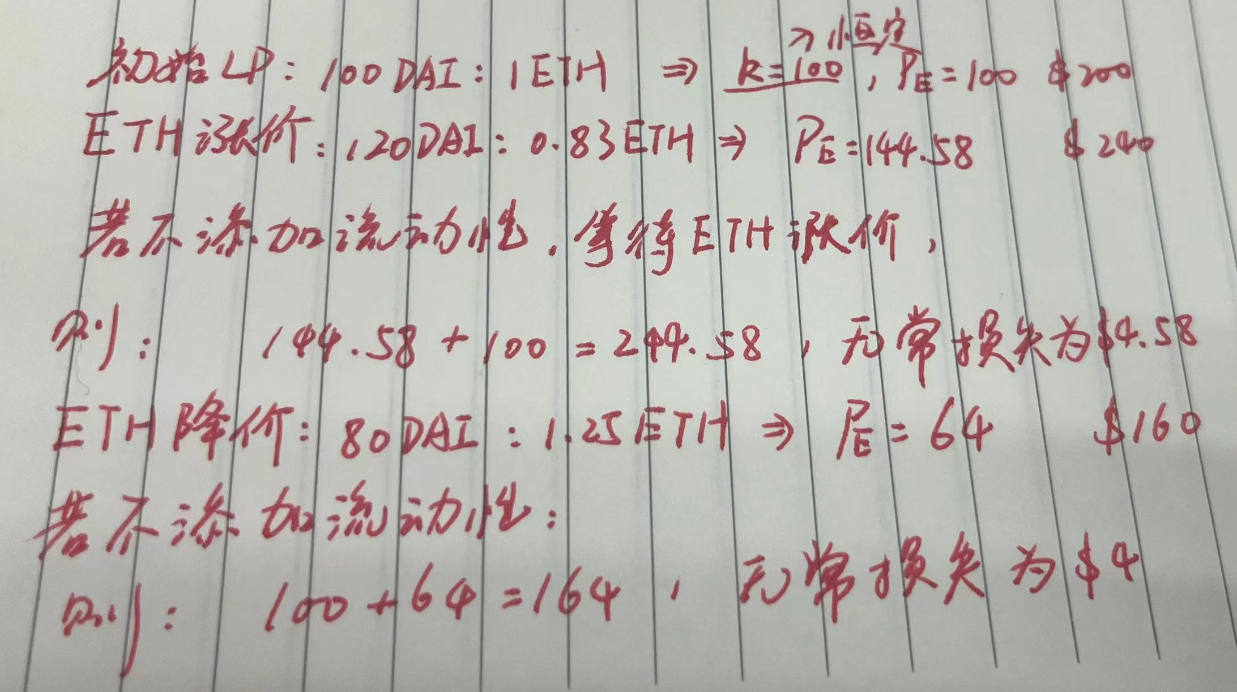 恒定
初始LP: 100DAI: 1ETH ⇒ k=100, PE=100 $200
ETH涨价: 120DAI: 0.83ETH ⇒ PE=144.58 $240
若不添加流动性, 等待ETH涨价,
则: 144.58+100=244.58, 无常损失为$4.58
ETH降价: 80DAI: 1.25ETH ⇒ PE=64 $160
若不添加流动性:
则: 100+64=164, 无常损失为$4